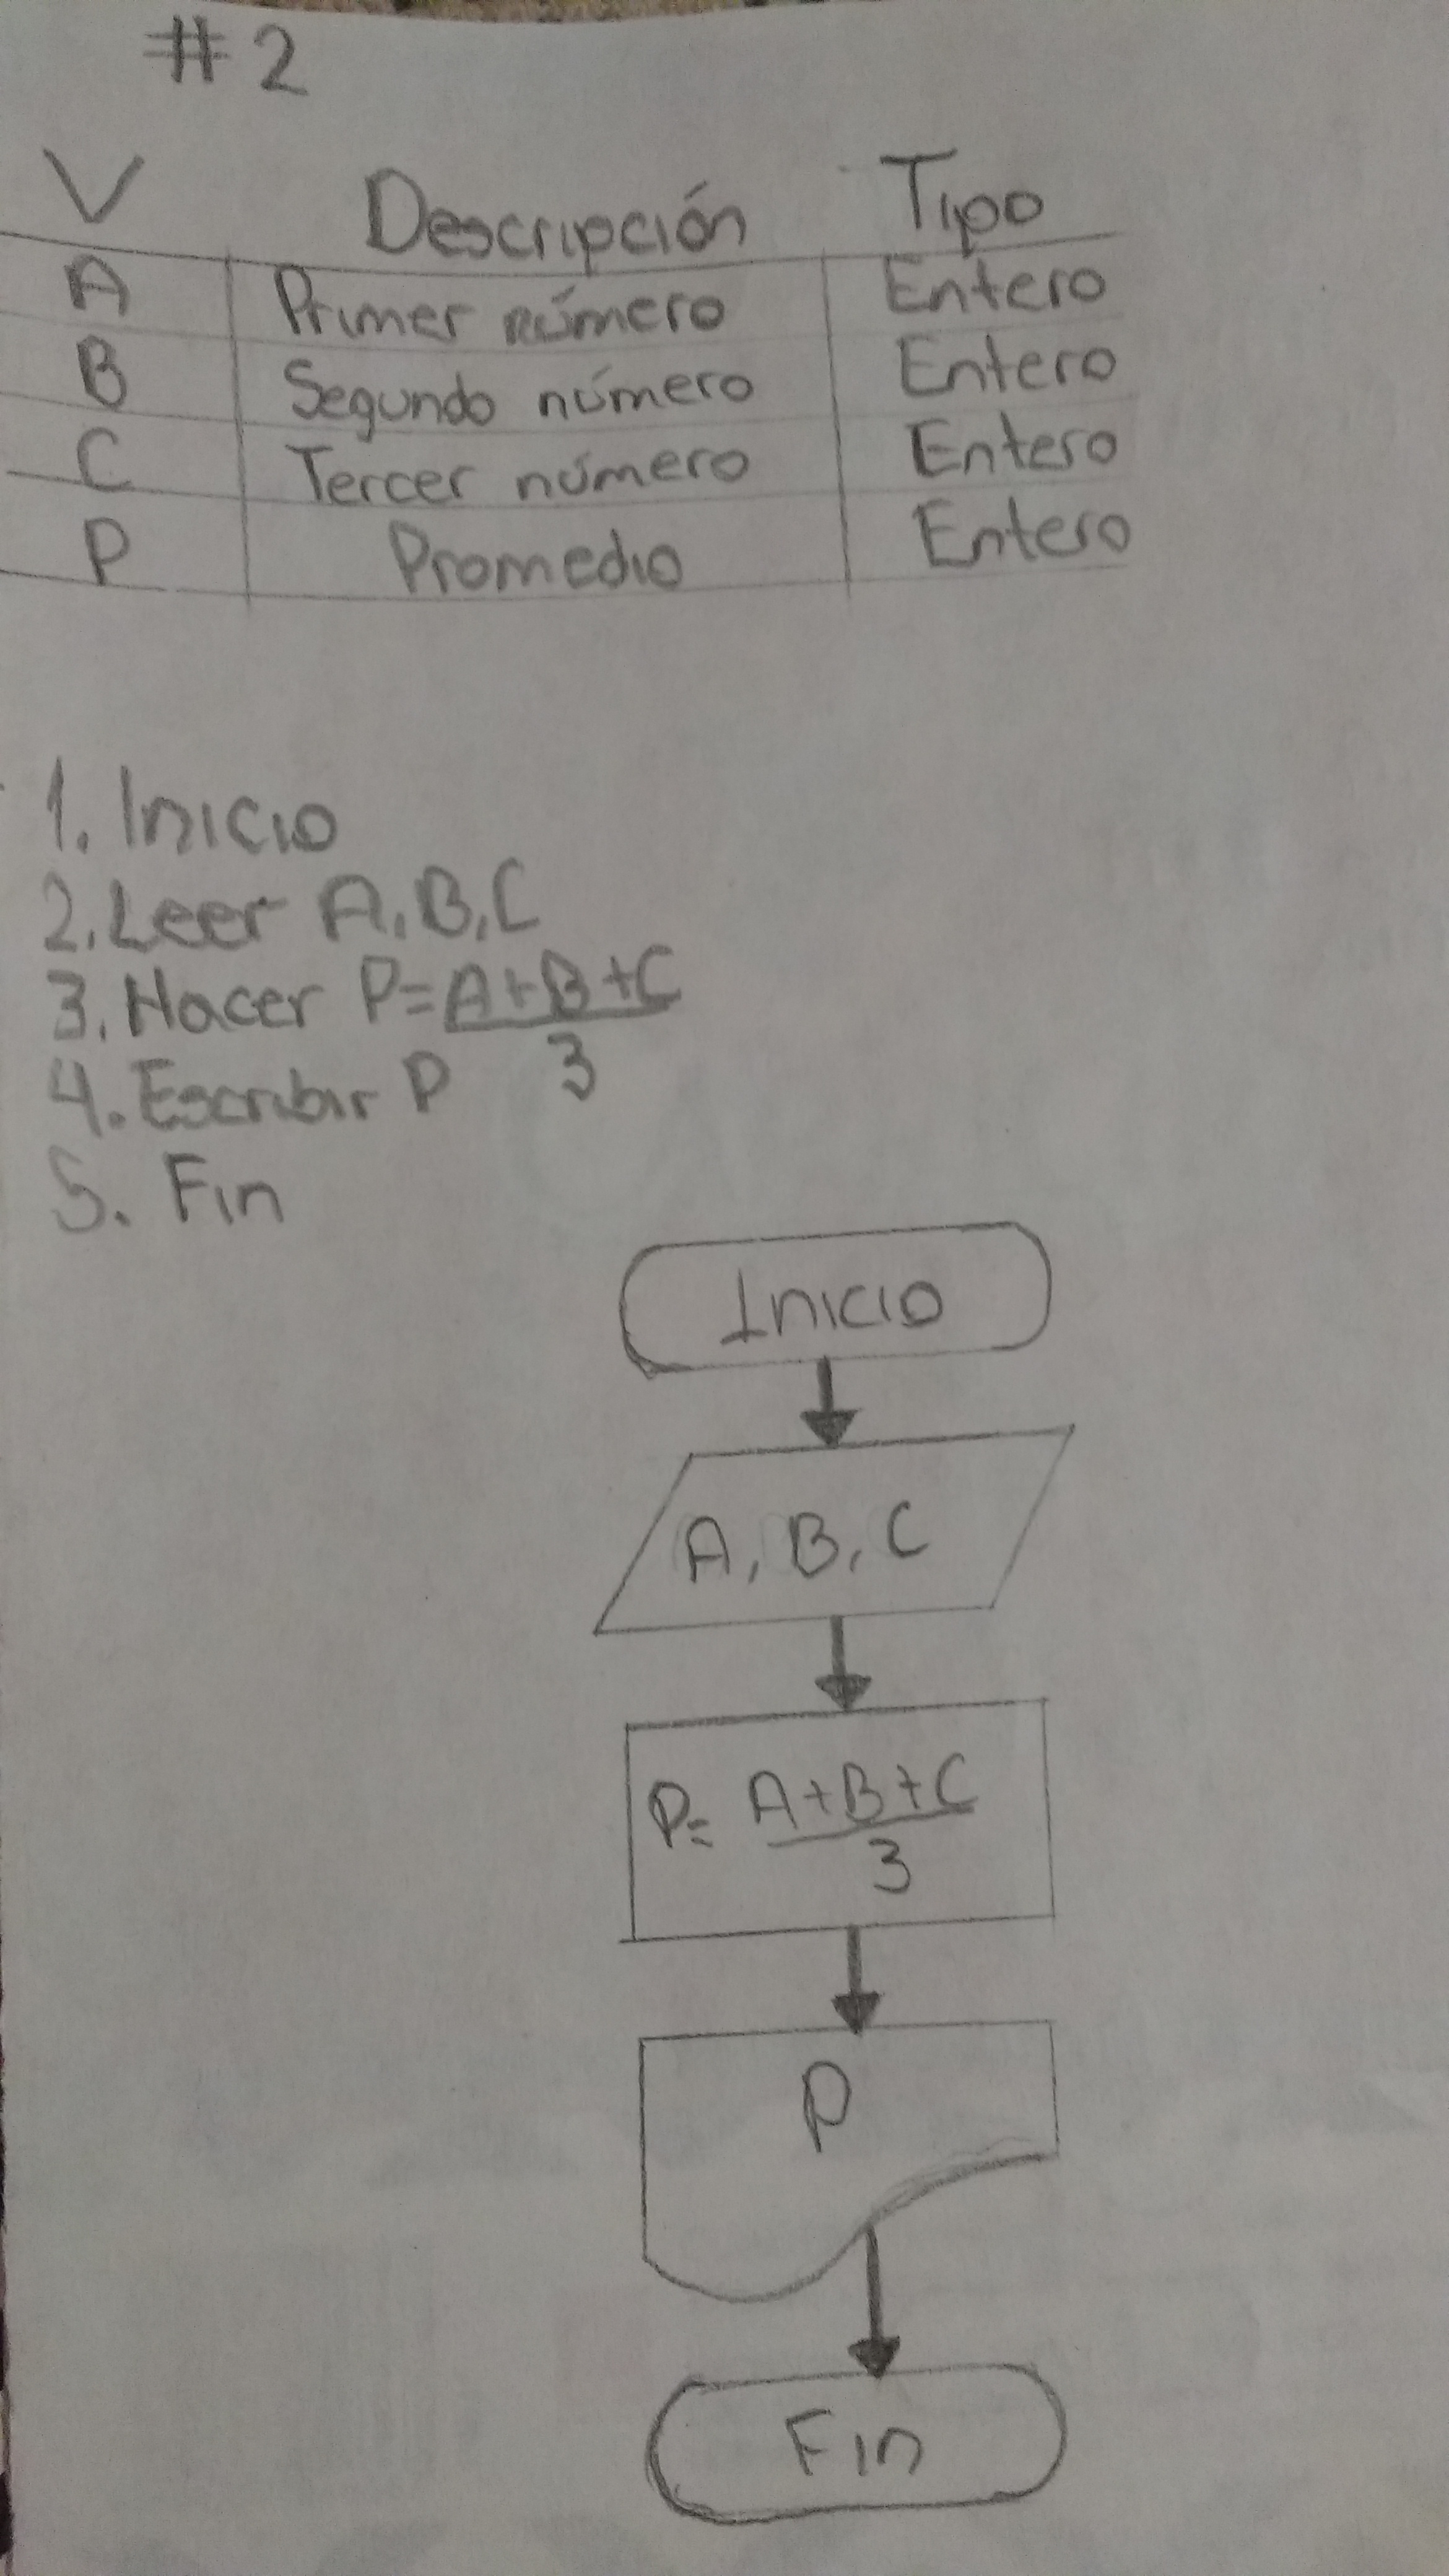 #2
V Descripción Tipo
A Primer número Entero
B Segundo número Entero
C Tercer número Entero
P Promedio Entero
1. Inicio
2. Leer A, B, C
3. Hacer P= A+B+C
3
4. Escribir P
5. Fin
Inicio
A, B, C
P= A+B+C
3
P
Fin